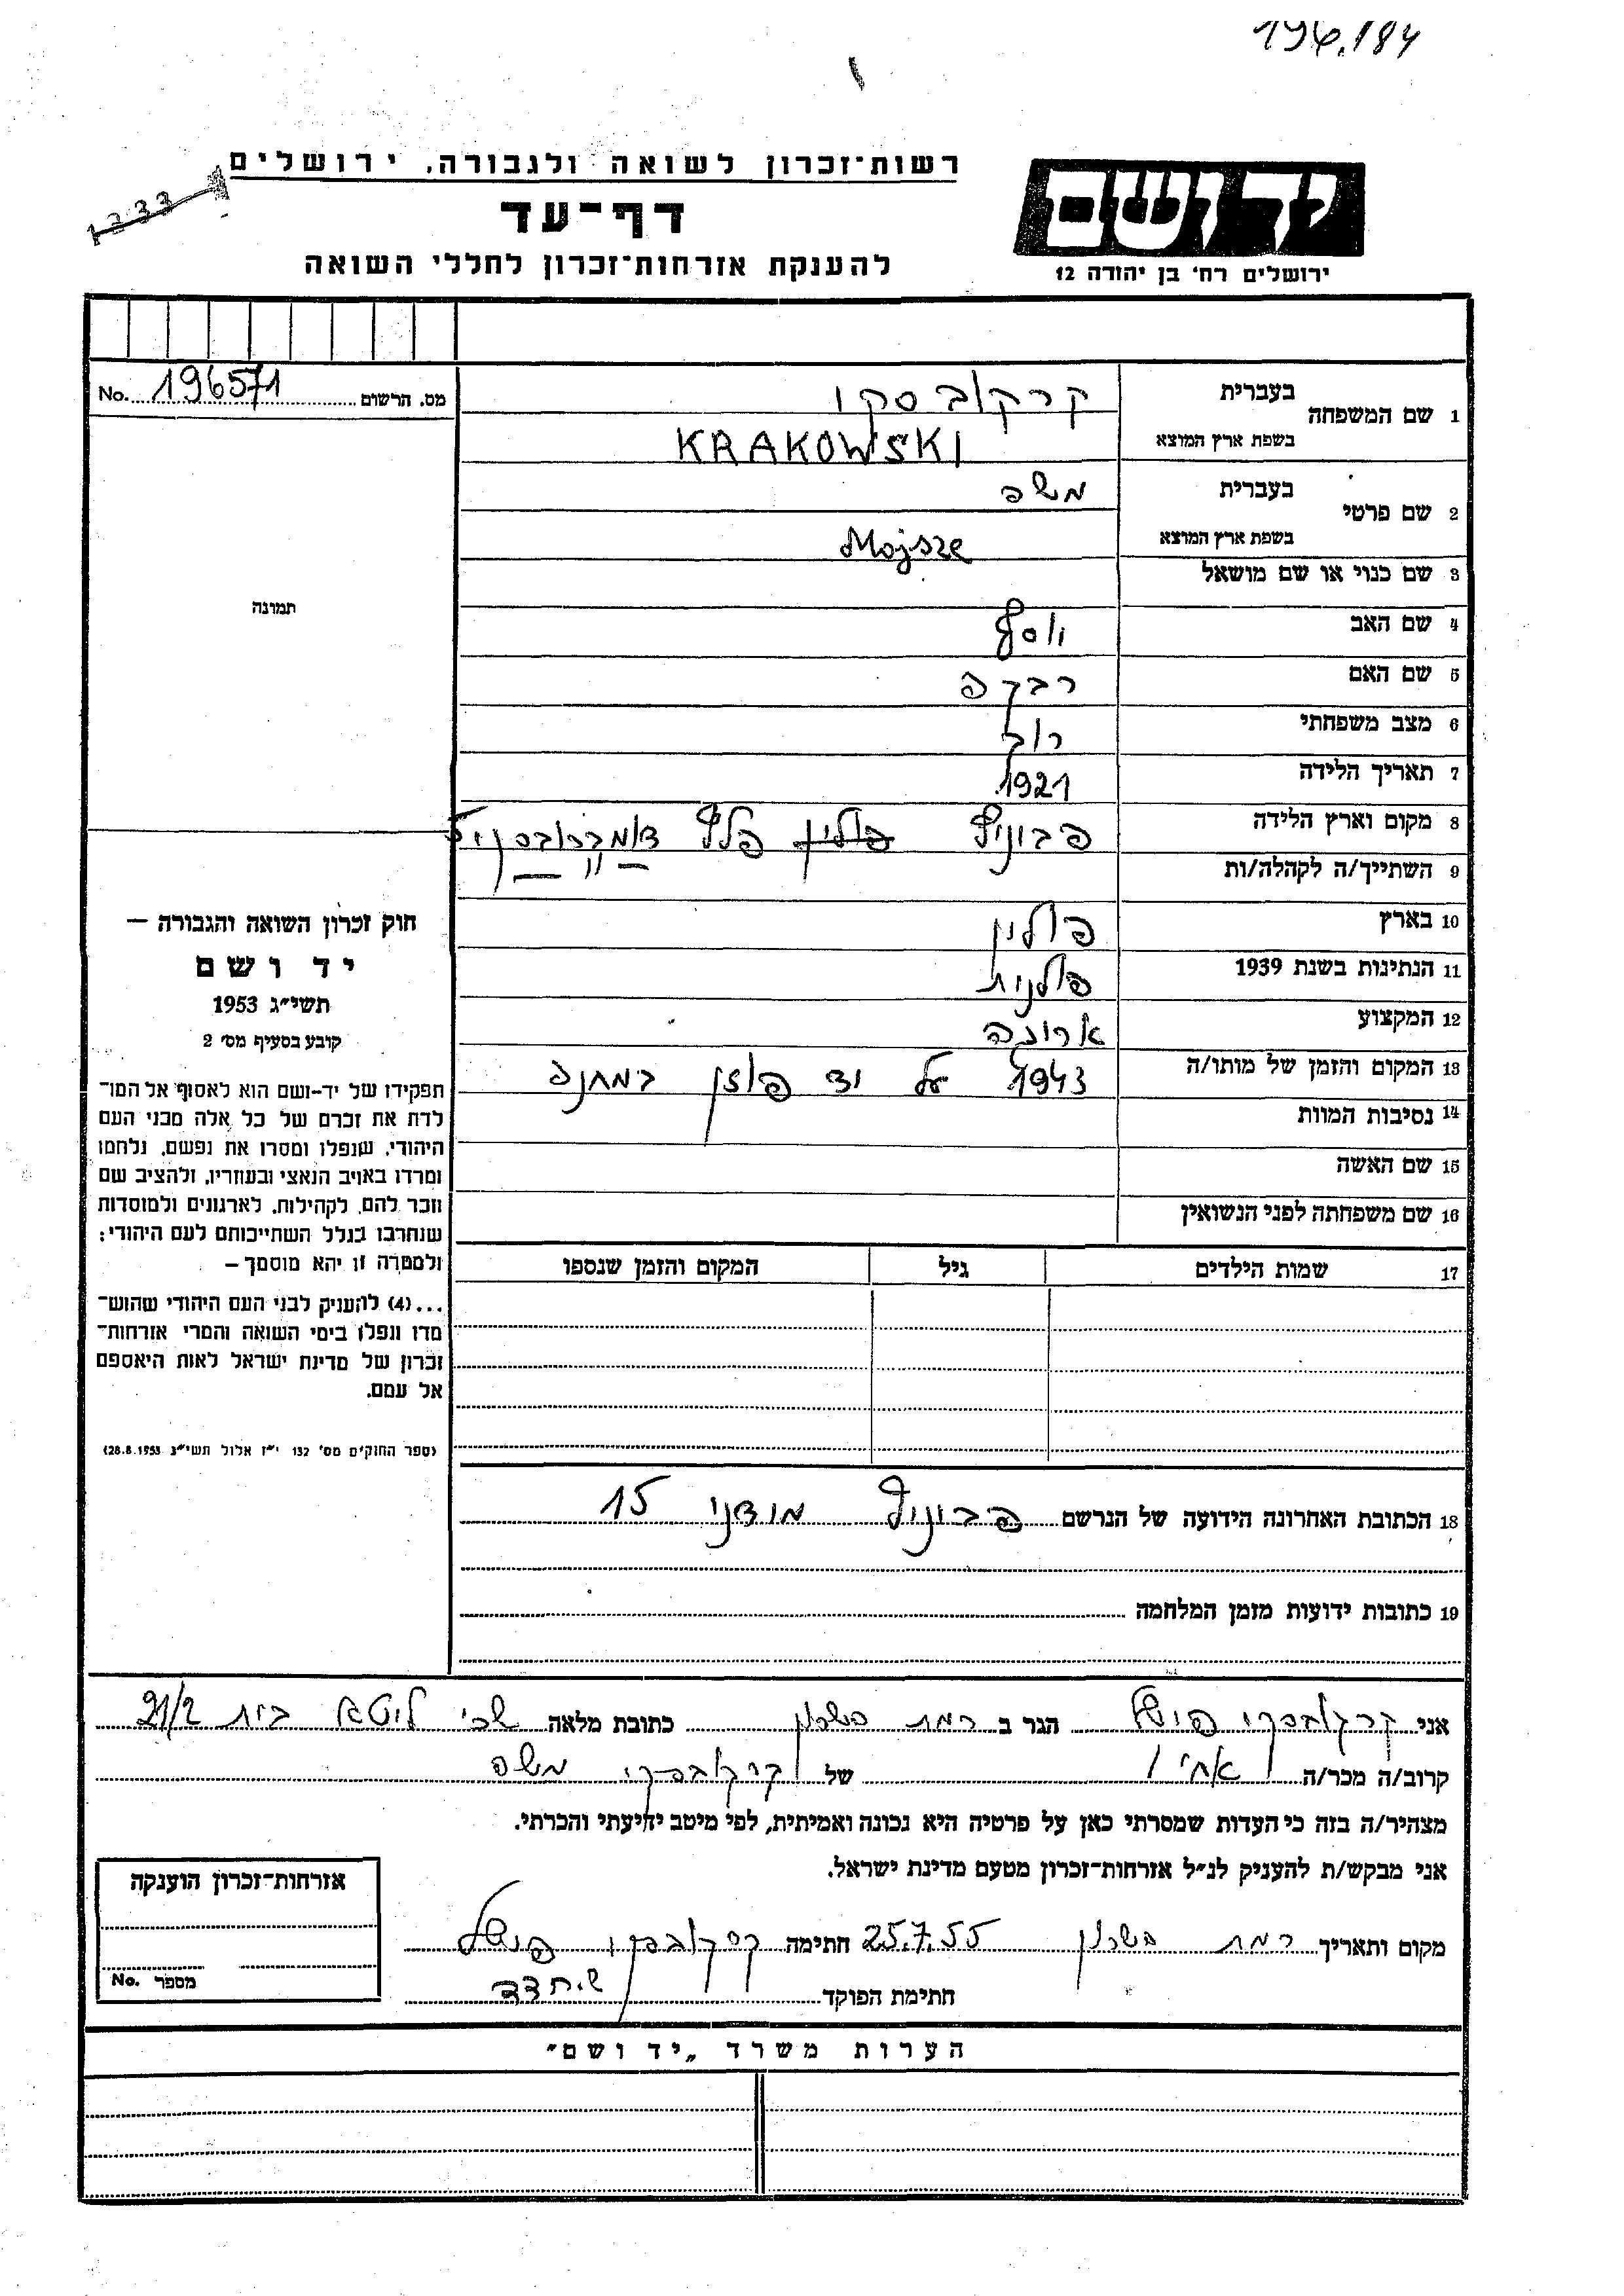 196.184
רשות־זכרון לשואה ולגבורה, ירושלים
1233
ידושם
דף־עד
להענקת אזרחות־זכרון לחללי השואה
ירושלים רח' בן יהודה 12
מס. הרשום 196571 No.
1 שם המשפחה
בעברית קרקובסקי
בשפת ארץ המוצא KRAKOWSKI
2 שם פרטי
בעברית משה
בשפת ארץ המוצא Mojsze
3 שם כנוי או שם מושאל
תמונה
4 שם האב יוסף
5 שם האם רבקה
6 מצב משפחתי רווק
7 תאריך הלידה 1921
8 מקום וארץ הלידה פולין
9 השתייך/ה לקהלה/ות — " —
10 בארץ פולין
11 הנתינות בשנת 1939 פולנית
12 המקצוע
13 המקום והזמן של מותו/ה 1943 על יד פוזן במחנה
14 נסיבות המוות
15 שם האשה
16 שם משפחתה לפני הנשואין
17 שמות הילדים גיל המקום והזמן שנספו
חוק זכרון השואה והגבורה —
יד ושם
תשי״ג 1953
קובע בסעיף מס' 2
תפקידו של יד-ושם הוא לאסוף אל המו־
לדת את זכרם של כל אלה מבני העם
היהודי, שנפלו ומסרו את נפשם, נלחמו
ומרדו באויב הנאצי ובעוזריו, ולהציב שם
וזכר להם, לקהילות, לארגונים ולמוסדות
שנחרבו בגלל השתייכותם לעם היהודי;
ולמטרה זו יהא מוסמך —
...(4) להעניק לבני העם היהודי שהוש־
מדו ונפלו בימי השואה והמרי אזרחות־
זכרון של מדינת ישראל לאות היאספם
אל עמם.
(ספר החוקים מס' 132 י״ז אלול תשי״ג 28.8.1953)
18 הכתובת האחרונה הידועה של הנרשם 15
19 כתובות ידועות מזמן המלחמה
אני קרקובסקי פישל הגר ב רמת השרון כתובת מלאה בית 21/2
קרוב/ה מכר/ה אחיו של קרקובסקי משה
מצהיר/ה בזה כי העדות שמסרתי כאן על פרטיה היא נכונה ואמיתית, לפי מיטב ידיעתי והכרתי.
אני מבקש/ת להעניק לנ״ל אזרחות־זכרון מטעם מדינת ישראל.
מקום ותאריך רמת השרון 25.7.55 חתימה קרקובסקי פישל
חתימת הפוקד
אזרחות־זכרון הוענקה
מספר No.
הערות משרד „יד ושם״